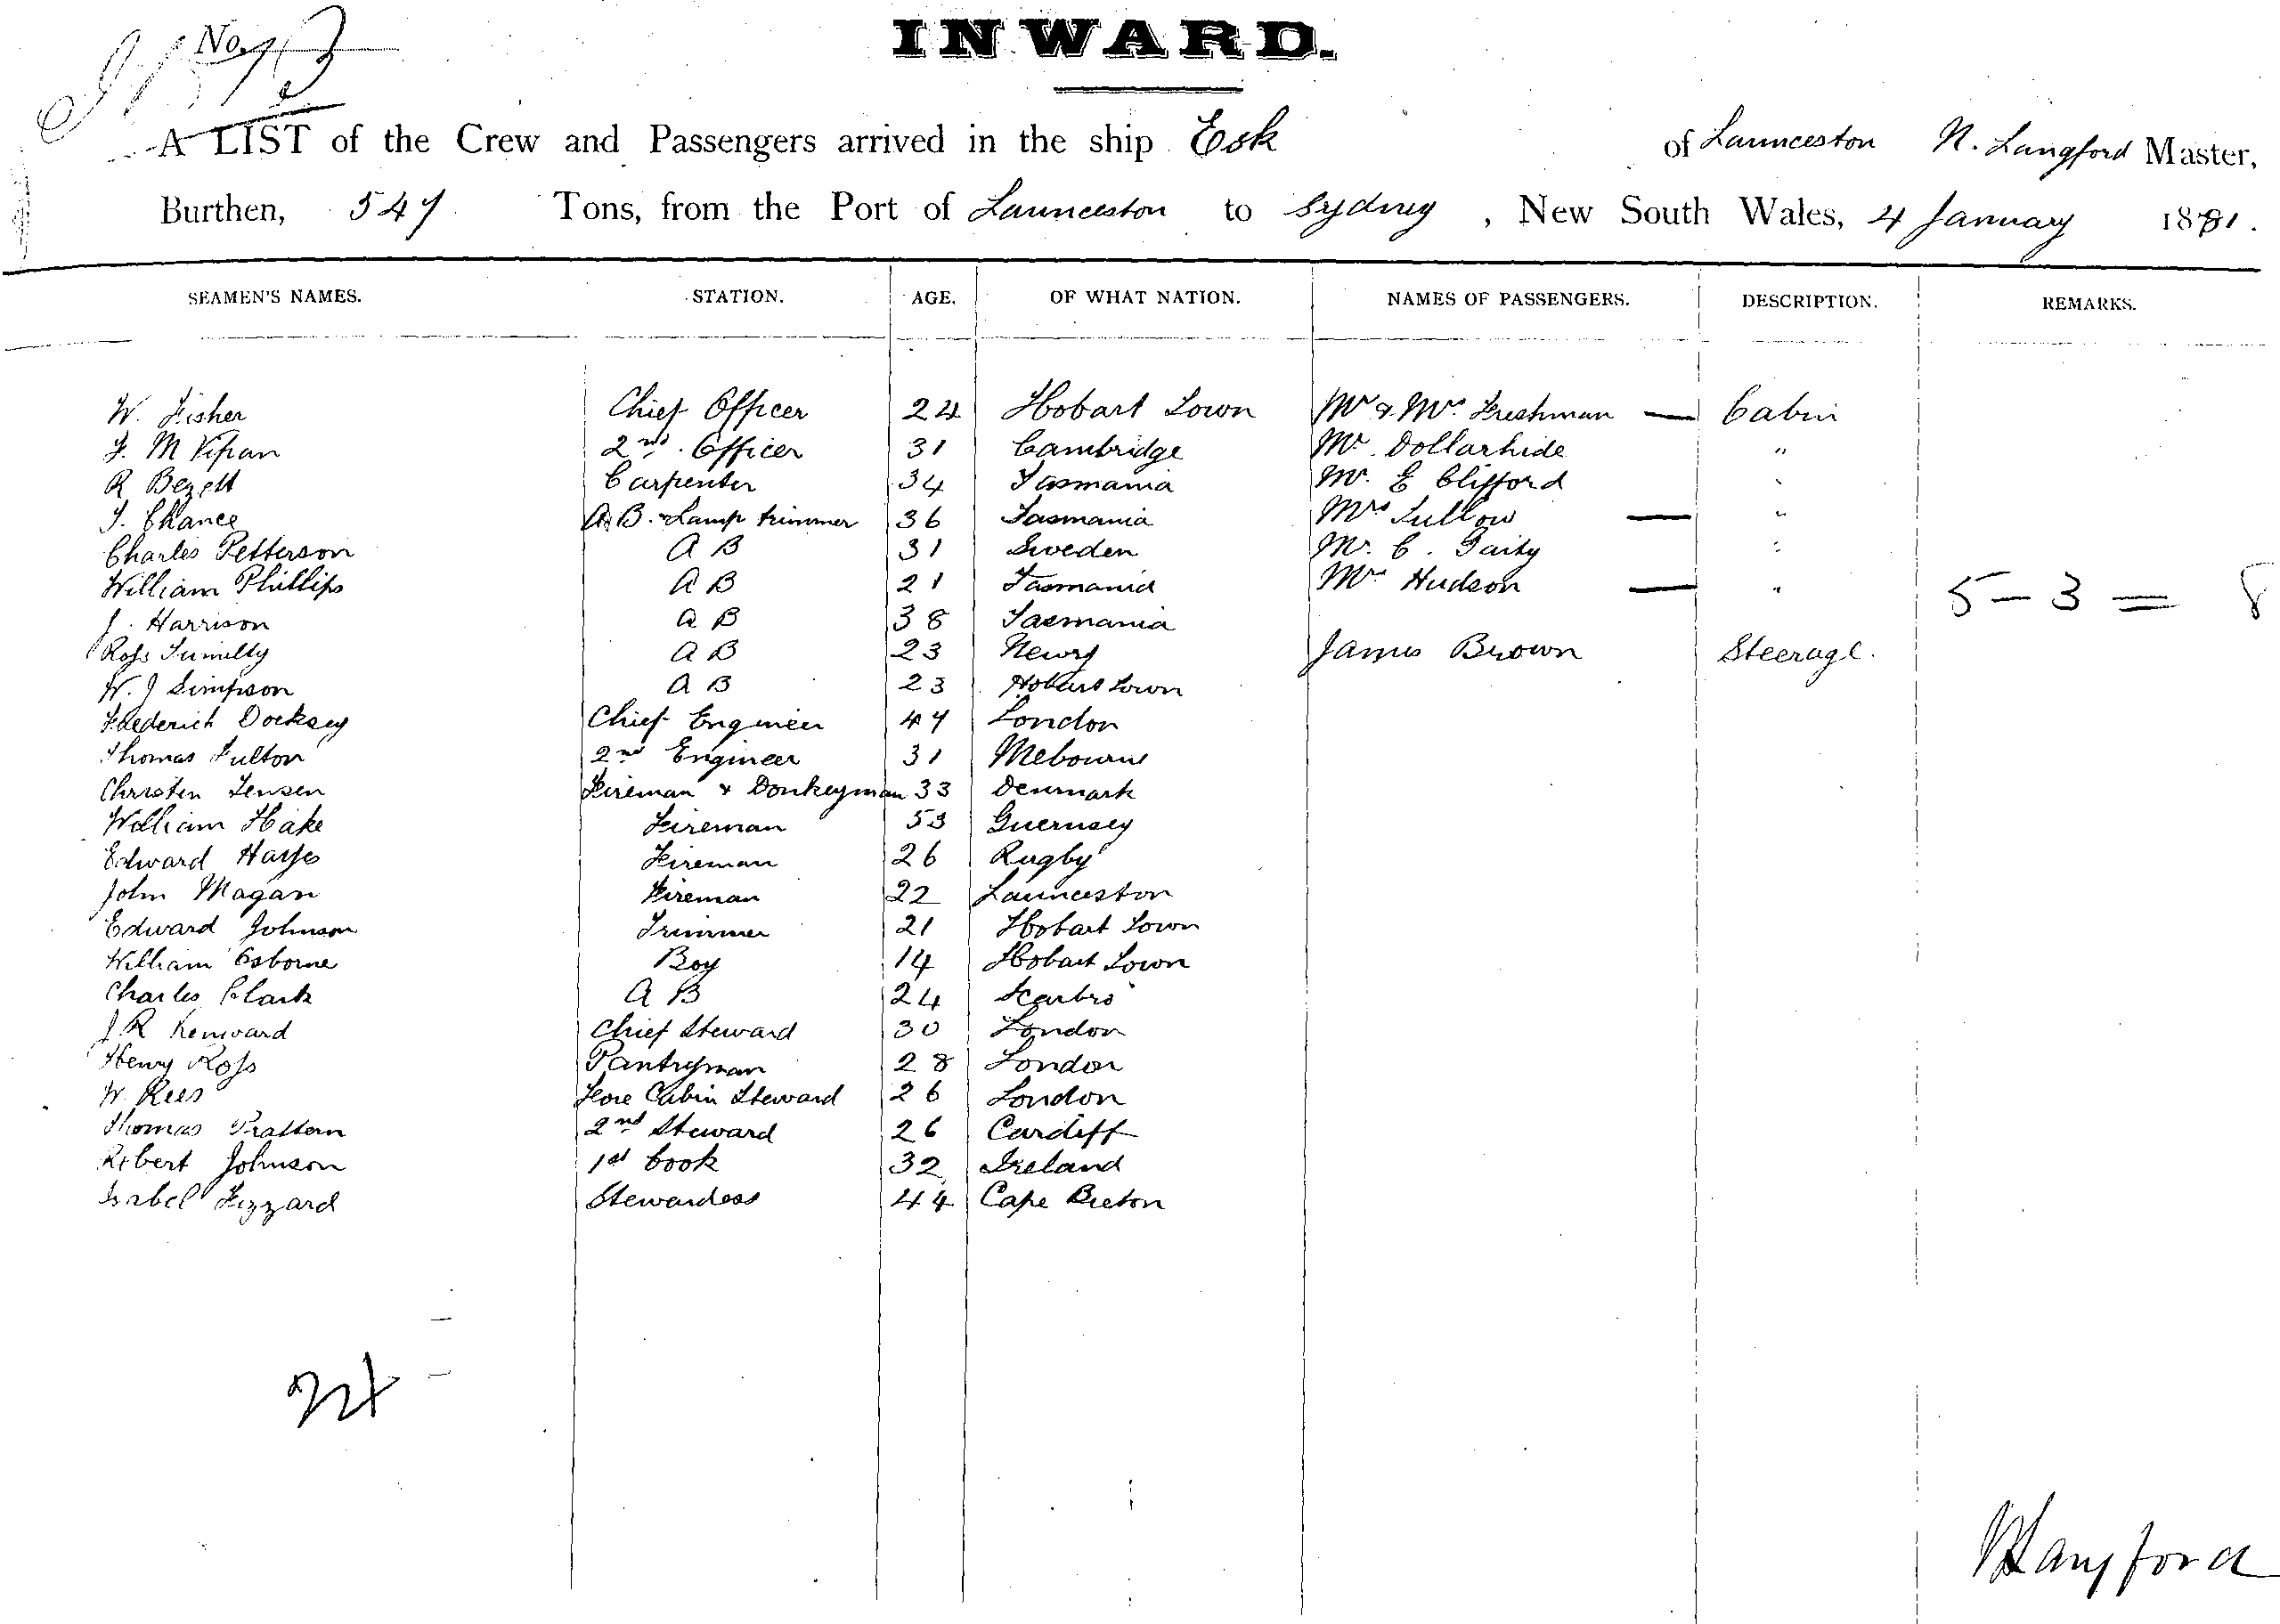 No. 13
INWARD.
A LIST of the Crew and Passengers arrived in the ship Esk of Launceston N. Langford Master,
Burthen, 547 Tons, from the Port of Launceston to Sydney, New South Wales, 4 January 1881.
SEAMEN'S NAMES. STATION. AGE. OF WHAT NATION. NAMES OF PASSENGERS. DESCRIPTION. REMARKS.
W. Fisher Chief Officer 24 Hobart Town Mr & Mrs Freshman — Cabin
F. M Vipan 2nd Officer 31 Cambridge Mr. Dollarhide "
R Bezett Carpenter 34 Tasmania Mr. E Clifford "
J. Chance A.B. & Lamp trimmer 36 Tasmania Mrs Tullow — "
Charles Petterson A B 31 Sweden Mr. C. Gaity "
William Phillips A B 21 Tasmania Mrs Hudson — " 5 – 3 = 8
J. Harrison A B 38 Tasmania
Ross Tumilty A B 23 Newry James Brown Steerage.
W. J Simpson A B 23 Hobart Town
Frederich Docksey Chief Engineer 47 London
Thomas Fulton 2nd Engineer 31 Mebourne
Christen Jensen Fireman & Donkeyman 33 Denmark
William Hake Fireman 53 Guernsey
Edward Hayes Fireman 26 Rugby
John Magan Fireman 22 Launceston
Edward Johnson Trimmer 21 Hobart Town
William Osborne Boy 14 Hobart Town
Charles Clark A B 24 Scarbro
J. R Kenward Chief Steward 30 London
Henry Ross Pantryman 28 London
W. Rees Fore Cabin Steward 26 London
Thomas Prattern 2nd Steward 26 Cardiff
Robert Johnson 1st Cook 32 Ireland
Isabel Fizzard Stewardess 44 Cape Breton
24
N Langford